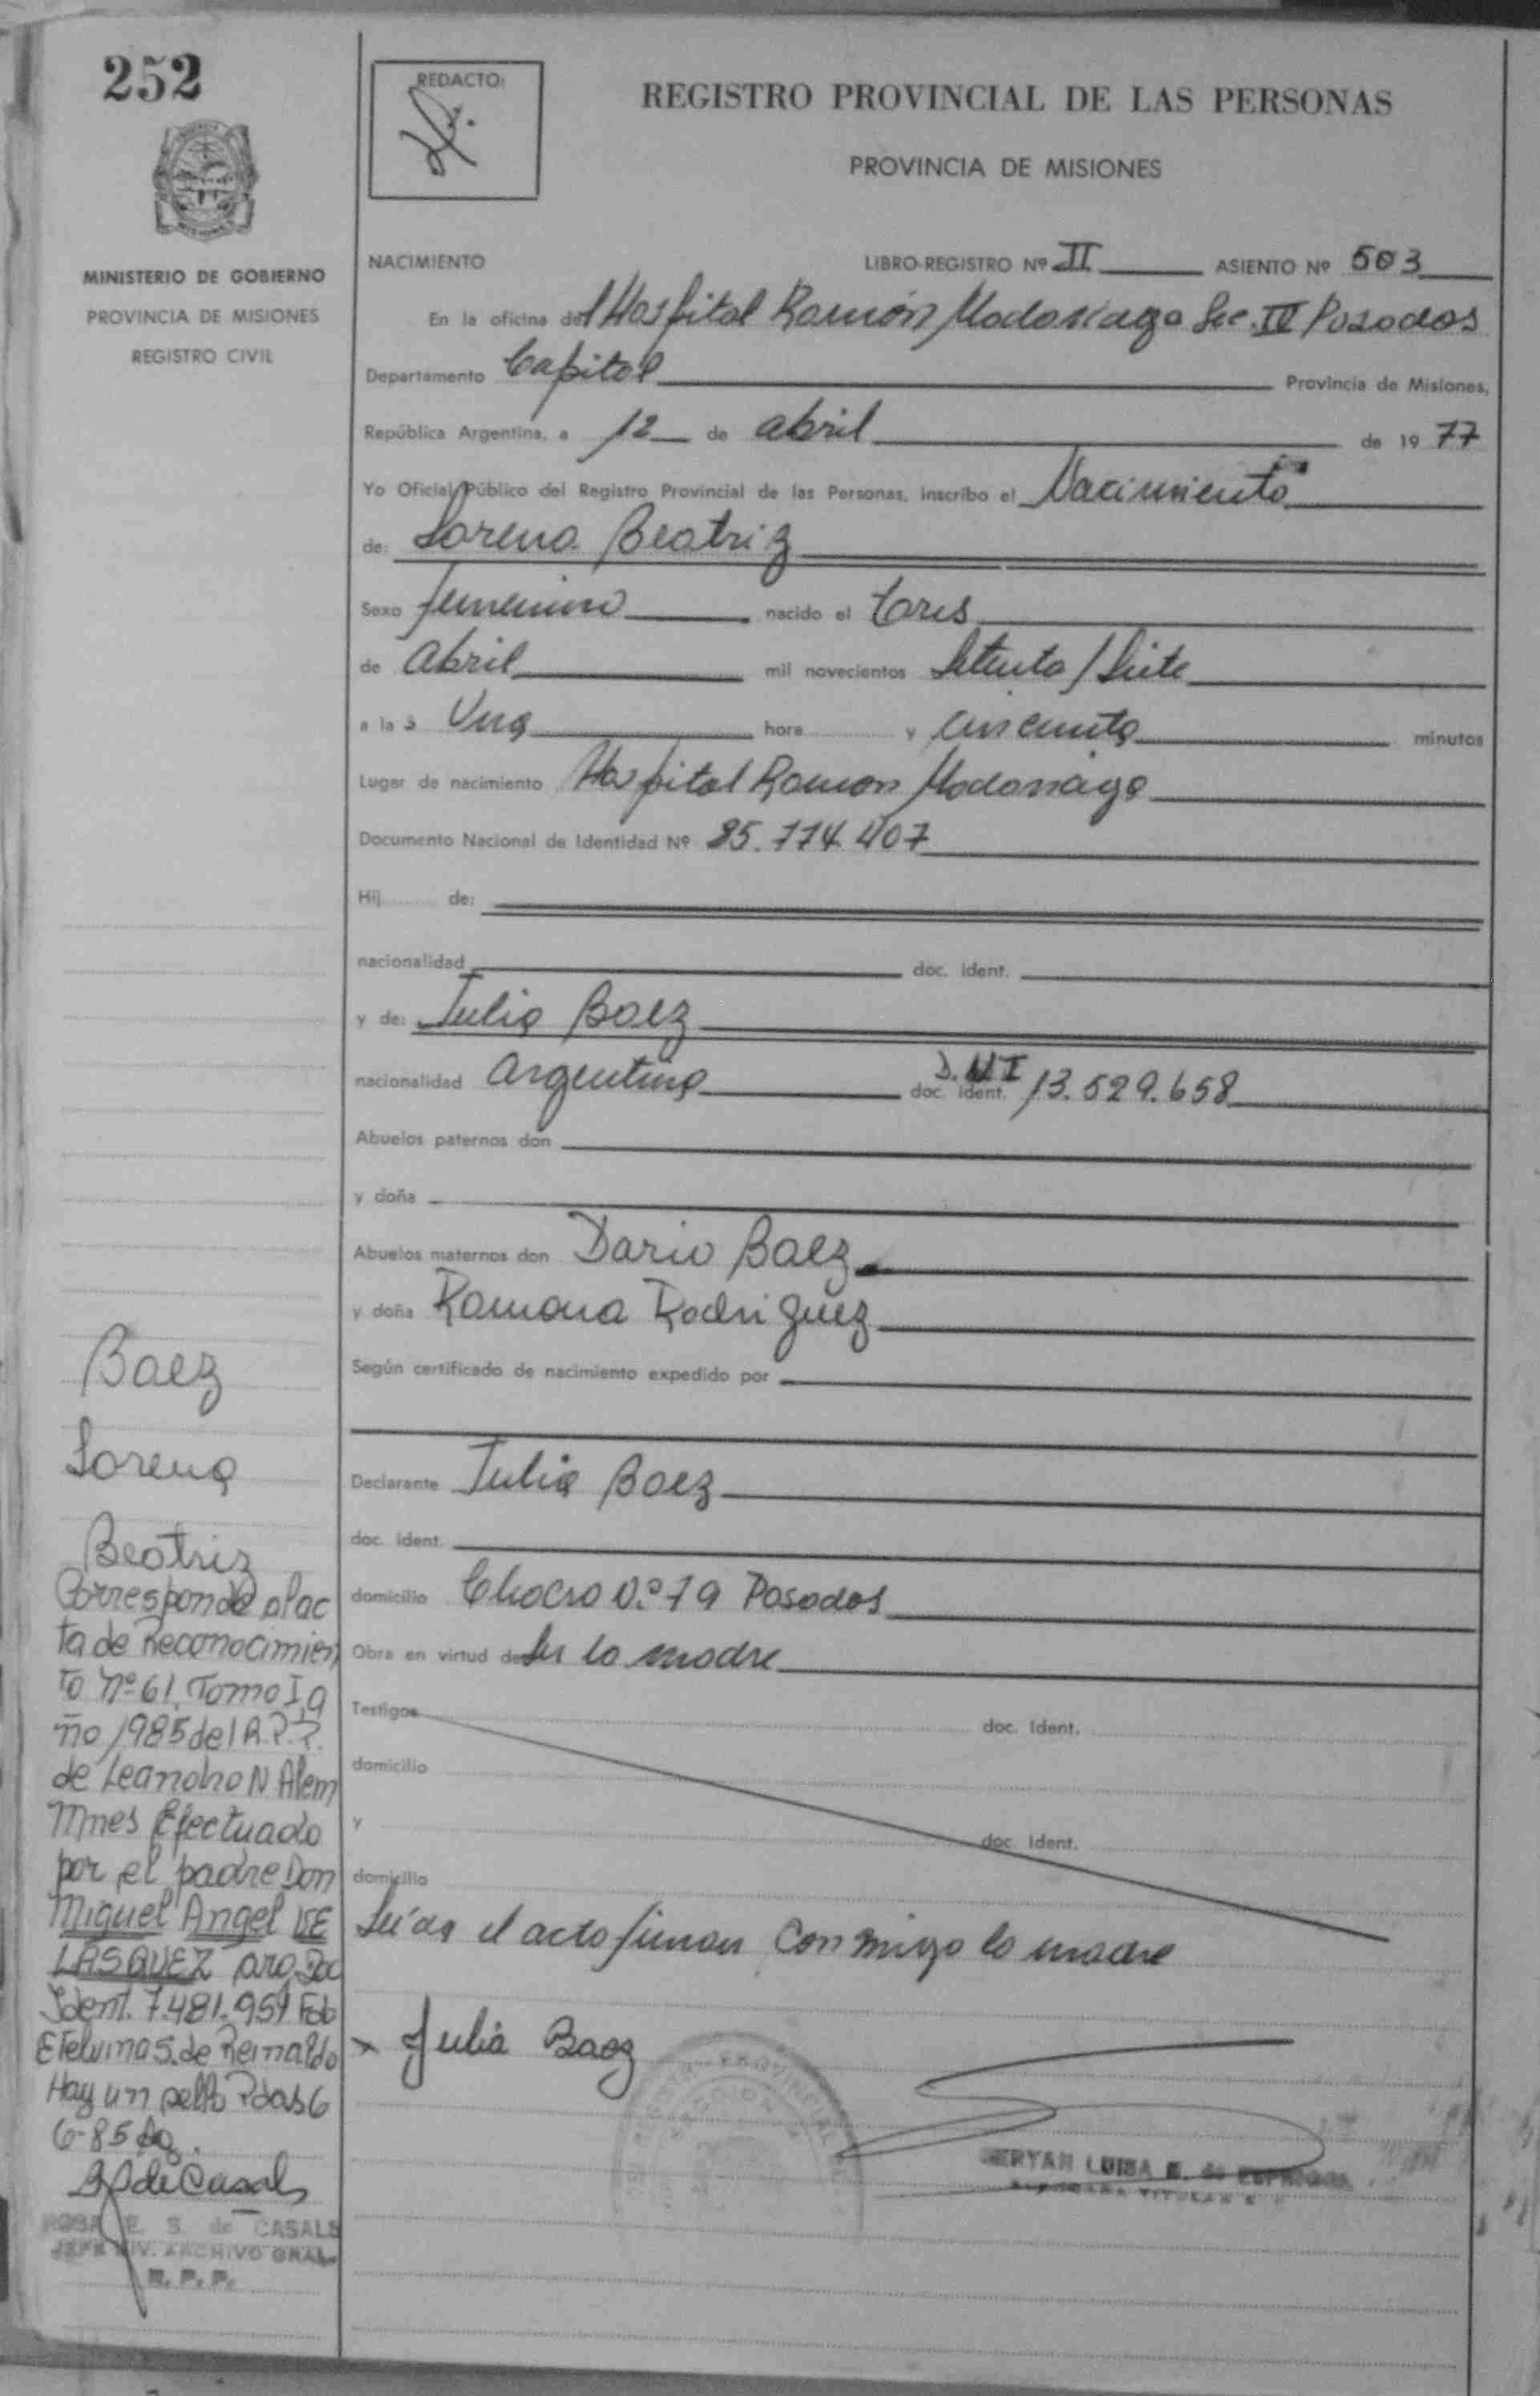 252
REDACTO:
REGISTRO PROVINCIAL DE LAS PERSONAS
PROVINCIA DE MISIONES
MINISTERIO DE GOBIERNO
PROVINCIA DE MISIONES
REGISTRO CIVIL
NACIMIENTO LIBRO-REGISTRO Nº II ASIENTO Nº 503
En la oficina del Hospital Ramón Madariaga Sec. Posadas
Departamento Capital Provincia de Misiones,
República Argentina, a 12 de abril de 1977
Yo Oficial Público del Registro Provincial de las Personas, inscribo el Nacimiento
de: Lorena Beatriz
Sexo femenino nacido el tres
de abril mil novecientos Setenta / Siete
a la s Una hora y cincuenta minutos
Lugar de nacimiento Hospital Ramon Madariaga
Documento Nacional de Identidad Nº 25.774.407
Hij de:
nacionalidad doc. Ident.
y de: Julia Baez
nacionalidad argentina D.N.I doc. ident. 13.529.658
Abuelos paternos don
y doña
Abuelos maternos don Dario Baez
y doña Ramona Rodriguez
Según certificado de nacimiento expedido por
Declarante Julia Baez
doc. ident.
domicilio Chacra N.º 79 Posadas
Obra en virtud de Ser la madre
Testigos doc. Ident.
domicilio
y doc. Ident.
domicilio
Leída el acta firman conmigo la madre
x Julia Baez
Baez
Lorena
Beatriz
Corresponde al ac
ta de Reconocimien
to nº 61, Tomo I, a
ño 1985 del R.P.P.
de Leandro N Alem
Mnes Efectuado
por el padre Don
Miguel Angel VE
LASQUEZ arg. Doc
Ident. 7.481.959 Fdo
Etelvina S. de Reinaldo
Hay un sello Pdas 6
6-85
de Casals
ROSA E. S. de CASALS
JEFE DIV. ARCHIVO GRAL.
R. P. P.
LUISA E. de